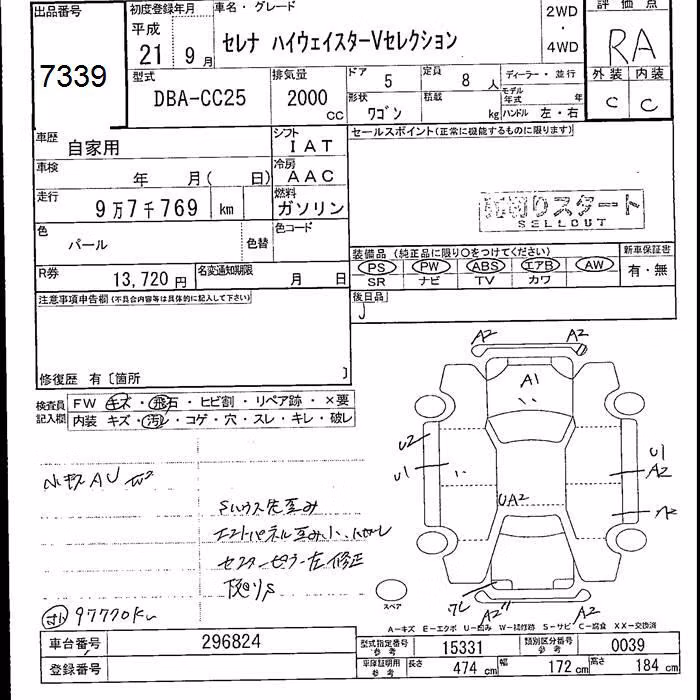 出品番号 初度登録年月 車名・グレード 2WD ・ 4WD 評価点
7339 平成 21年9月 セレナ ハイウェイスターVセレクション RA
型式 排気量 ドア 5 定員 8人 ディーラー・並行 外装 内装
DBA-CC25 2000cc 形状 ワゴン 積載 kg モデル年式 年 ハンドル 左・右 C C
車歴 自家用 シフト IAT セールスポイント(正常に機能するものに限ります)
車検 年 月( 日) 冷房 AAC
走行 9万7千769 km 燃料 ガソリン 売切りスタート
SELLOUT
色 パール 色替 色コード 装備品 (純正品に限り○をつけてください) 新車保証書
PS PW ABS エアB AW 有・無
R券 13,720円 名変通知期限 月 日 SR ナビ TV カワ
注意事項申告欄(不具合内容等は具体的に記入して下さい) 後日品
修復歴 有〔箇所 〕
検査員記入欄 FW キズ・飛石・ヒビ割・リペア跡・×要
内装 キズ・汚レ・コゲ・穴・スレ・キレ・破レ
A2 A2
A1
U2 U1
U1 A2
UA2 A2
A2 A2
スペア
A-キズ E-エクボ U-凹み W-補修跡 S-サビ C-腐食 XX-交換済
AU W2
歪み
センターピラー左修正
97770Km
車台番号 296824 型式指定番号 参考 15331 類別区分番号 参考 0039
登録番号 車庫証明用 参考 長さ 474cm 幅 172cm 高さ 184cm